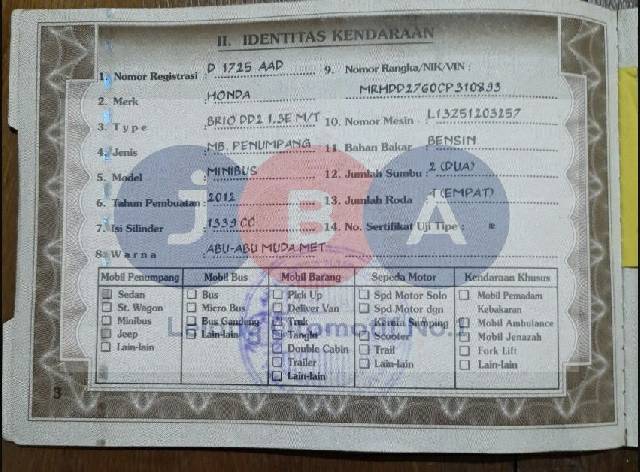 II. IDENTITAS KENDARAAN
1. Nomor Registrasi : D 1725 AAD
2. Merk : HONDA
3. Type : BRIO DD2 1.3E M/T
4. Jenis : MB. PENUMPANG
5. Model : MINIBUS
6. Tahun Pembuatan : 2012
7. Isi Silinder : 1339 CC
8. Warna : ABU-ABU MUDA MET
9. Nomor Rangka/NIK/VIN :
MRHDD2760CP310893
10. Nomor Mesin : L13Z51203257
11. Bahan Bakar : BENSIN
12. Jumlah Sumbu : 2 (DUA)
13. Jumlah Roda : (EMPAT)
14. No. Sertifikat Uji Tipe :
JBA
Mobil Penumpang
Sedan
St. Wagon
Minibus
Jeep
Lain-lain
Mobil Bus
Bus
Micro Bus
Bus Gandeng
Lain-lain
Mobil Barang
Pick Up
Deliver Van
Truk
Tangki
Double Cabin
Trailer
Lain-lain
Sepeda Motor
Spd Motor Solo
Spd Motor dgn
Kereta Samping
Scooter
Trail
Lain-lain
Kendaraan Khusus
Mobil Pemadam
Kebakaran
Mobil Ambulance
Mobil Jenazah
Fork Lift
Lain-lain
No.1
3